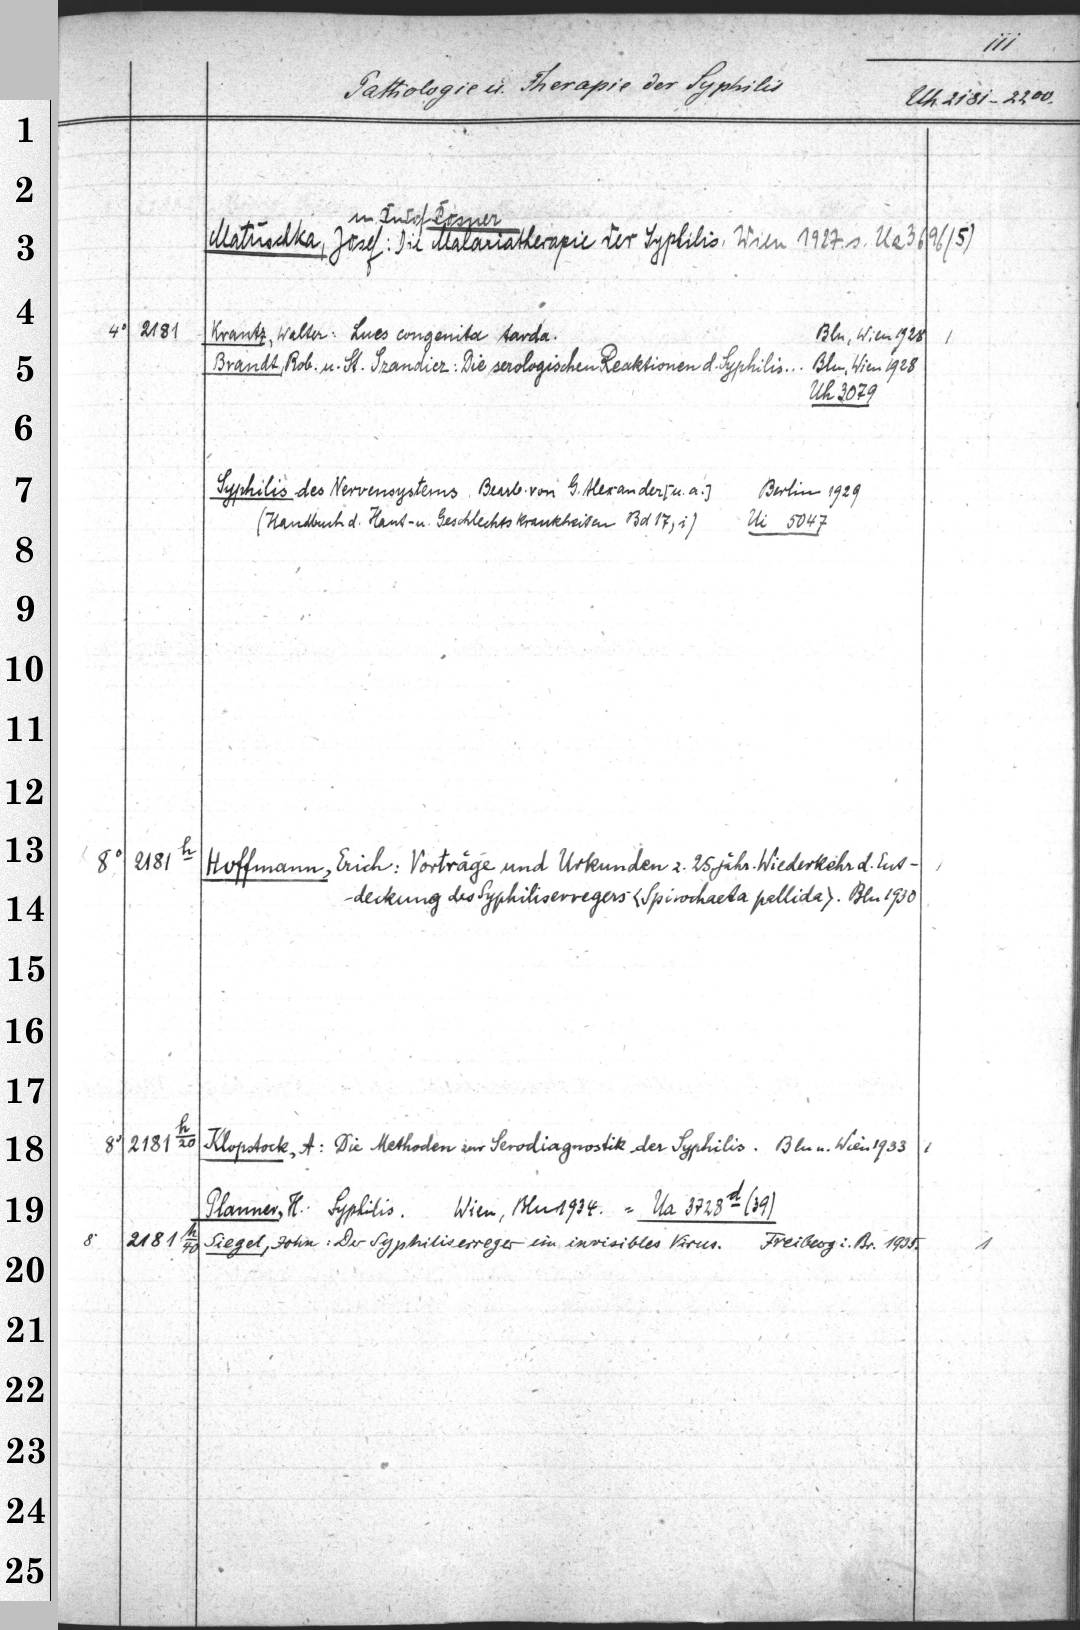 iii
Pathologie u. Therapie der Syphilis
Uh 2181-2200.
1
2
u. Rosner
3 Matuschka, Josef: Die Malariatherapie der Syphilis. Wien 1927. s. Ua 3696(5)
4 4° 2181 Krantz, Walter: Lues congenita tarda. Bln, Wien 1928 1
5 Brandt, Rob. u. St. Szandicz: Die serologischen Reaktionen d. Syphilis... Bln, Wien 1928
Uh 3079
6
7 Syphilis des Nervensystems. Bearb. von G. Alexander [u. a.] Berlin 1929
(Handbuch d. Haut- u. Geschlechtskrankheiten Bd 17, i) Ui 5047
8
9
10
11
12
13 8° 2181 h Hoffmann, Erich: Vorträge und Urkunden z. 25jähr. Wiederkehr d. Ent-
14 -deckung des Syphiliserregers <Spirochaeta pallida>. Bln 1930
15
16
17
18 8° 2181 h/20 Klopstock, A: Die Methoden zur Serodiagnostik der Syphilis. Bln u. Wien 1933 1
19 Planner, H. Syphilis. Wien, Bln 1934. = Ua 3728 d (39)
8° 2181 h/40 Siegel, John: Der Syphiliserreger ein invisibles Virus. Freiburg i. Br. 1935. 1
20
21
22
23
24
25